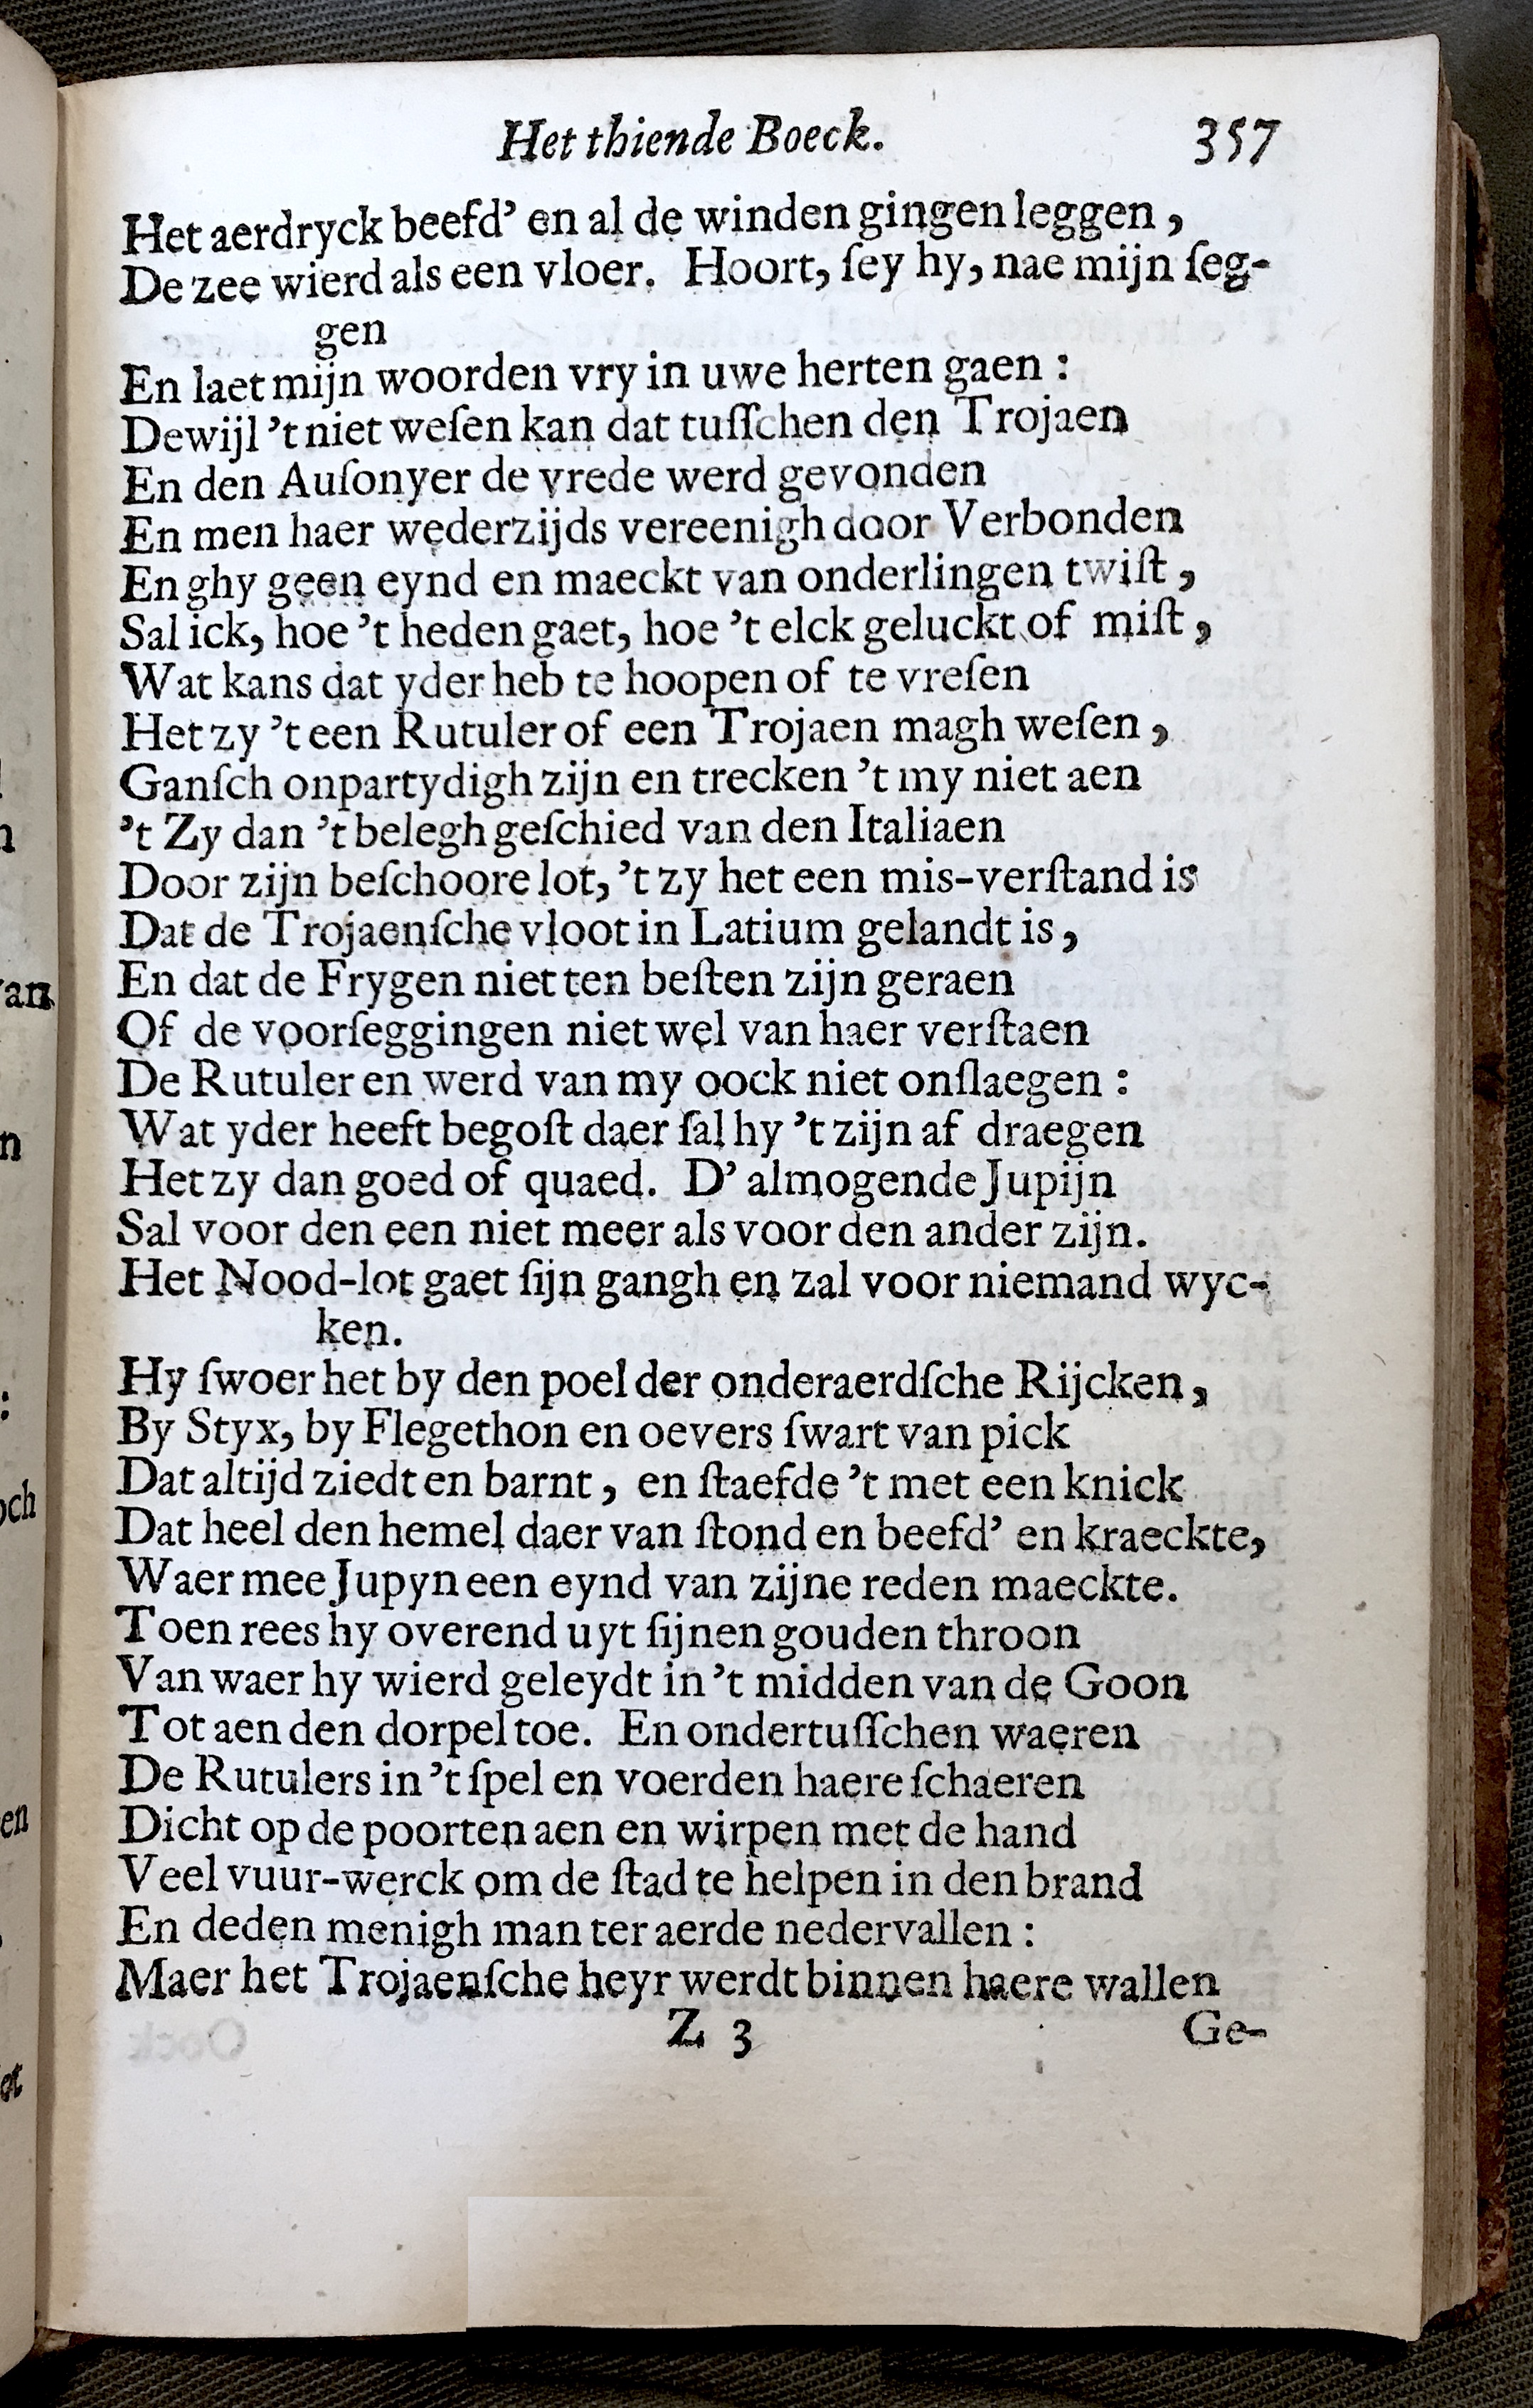 Het thiende Boeck. 357
Het aerdryck beefd’ en al de winden gingen leggen,
De zee wierd als een vloer. Hoort, ſey hy, nae mijn ſeg-
gen
En laet mijn woorden vry in uwe herten gaen:
Dewijl ’t niet weſen kan dat tuſſchen den Trojaen
En den Auſonyer de vrede werd gevonden
En men haer wederzijds vereenigh door Verbonden
En ghy geen eynd en maeckt van onderlingen twiſt,
Sal ick, hoe ’t heden gaet, hoe ’t elck geluckt of miſt,
Wat kans dat yder heb te hoopen of te vreſen
Het zy ’t een Rutuler of een Trojaen magh weſen,
Ganſch onpartydigh zijn en trecken ’t my niet aen
’t Zy dan ’t belegh geſchied van den Italiaen
Door zijn beſchoore lot, ’t zy het een mis-verſtand is
Dat de Trojaenſche vloot in Latium gelandt is,
En dat de Frygen niet ten beſten zijn geraen
Of de voorſeggingen niet wel van haer verſtaen
De Rutuler en werd van my oock niet onſlaegen:
Wat yder heeft begoſt daer ſal hy ’t zijn af draegen
Het zy dan goed of quaed. D’ almogende Jupijn
Sal voor den een niet meer als voor den ander zijn.
Het Nood-lot gaet ſijn gangh en zal voor niemand wyc-
ken.
Hy ſwoer het by den poel der onderaerdſche Rijcken,
By Styx, by Flegethon en oevers ſwart van pick
Dat altijd ziedt en barnt, en ſtaefde ’t met een knick
Dat heel den hemel daer van ſtond en beefd’ en kraeckte,
Waer mee Jupyn een eynd van zijne reden maeckte.
Toen rees hy overend uyt ſijnen gouden throon
Van waer hy wierd geleydt in ’t midden van de Goon
Tot aen den dorpel toe. En ondertuſſchen waeren
De Rutulers in ’t ſpel en voerden haere ſchaeren
Dicht op de poorten aen en wirpen met de hand
Veel vuur-werck om de ſtad te helpen in den brand
En deden menigh man ter aerde nedervallen:
Maer het Trojaenſche heyr werdt binnen haere wallen
Z 3 Ge-